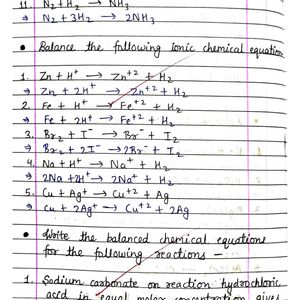 11. N₂ + H₂ → NH₃
⇒ N₂ + 3H₂ → 2NH₃
• Balance the following ionic chemical equation
1. Zn + H⁺ → Zn⁺² + H₂
⇒ Zn + 2H⁺ → Zn⁺² + H₂
2. Fe + H⁺ → Fe⁺² + H₂
⇒ Fe + 2H⁺ → Fe⁺² + H₂
3. Br₂ + I⁻ → Br⁻ + I₂
⇒ Br₂ + 2I⁻ → 2Br⁻ + I₂
4. Na + H⁺ → Na⁺ + H₂
⇒ 2Na + 2H⁺ → 2Na⁺ + H₂
5. Cu + Ag⁺ → Cu⁺² + Ag
⇒ Cu + 2Ag⁺ → Cu⁺² + 2Ag
• Write the balanced chemical equations
for the following reactions —
1. Sodium carbonate on reaction hydrochloric
acid in equal molar concentration gives